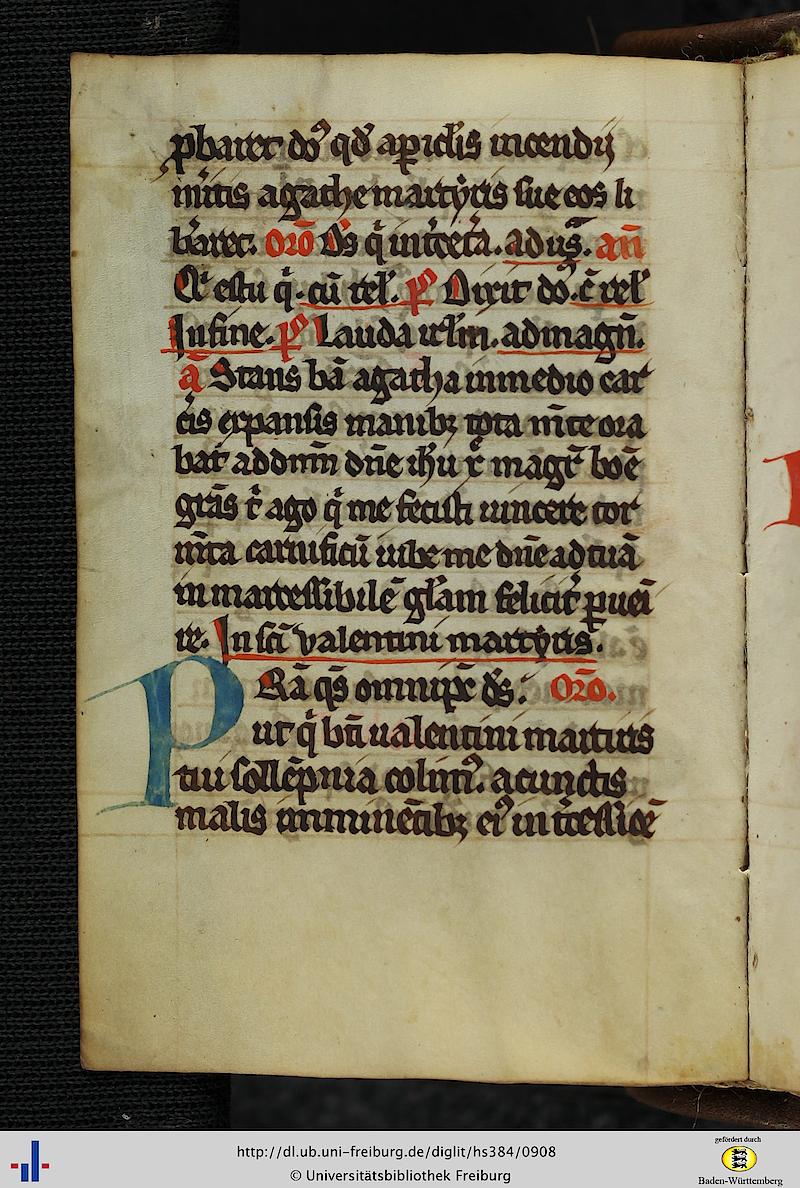 pbaret do᷒ qđ a pic̄lis incendij
mītis agathe martyris sue eos li
baret. Orō Ds̄ q̄ int̄ cet̄a. ad us̄. an̄
Q es tu q̄. cū rel̄. p̄s Dixit do᷒. c̄ rel̄
In fine. p̄s Lauda irl̄m. ad magn̄.
ā Stans bā agatha in medio car
c̄is expansis manibꝫ tota m̄te ora
bat ad dnm̄ dn̄e ih̄u x̄ magr̄ boē
grās t̄ ago q̄ me fecisti uincere tor
m̄ta carnificū iube me dn̄e ad tuā
inmarcessibilē gl̄am felicit̄ ꝑuei
re. In sc̄i valentini martyris.
PRā qs̄ omnip̄s ds̄: Orō.
ut q̄ bt̄i ualentini martiris
tui sollēpnia colim᷒. a cunctis
malis imminētibꝫ ei᷒ int̄cessiōe
http://dl.ub.uni-freiburg.de/diglit/hs384/0908
© Universitätsbibliothek Freiburg
gefördert durch
Baden-Württemberg